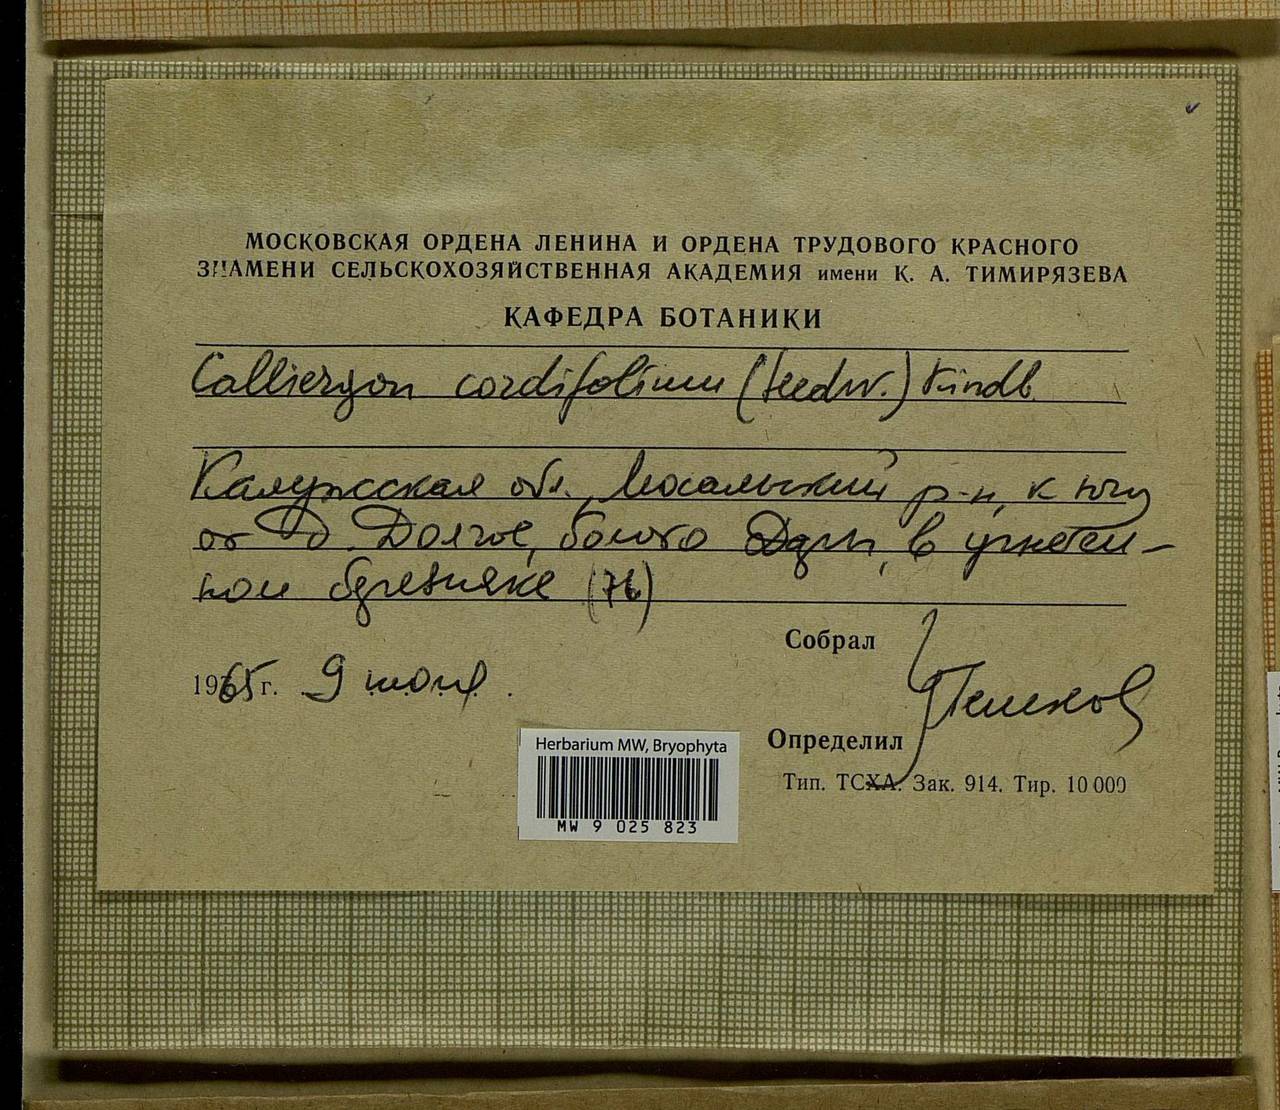 МОСКОВСКАЯ ОРДЕНА ЛЕНИНА И ОРДЕНА ТРУДОВОГО КРАСНОГО
ЗНАМЕНИ СЕЛЬСКОХОЗЯЙСТВЕННАЯ АКАДЕМИЯ имени К. А. ТИМИРЯЗЕВА
КАФЕДРА БОТАНИКИ
Calliergon cordifolium (Hedw.) Kindb.
Калужская обл., Мосальский р-н, к югу
от д. Долгое, болото в угнетен-
ном березняке (76)
Собрал
1965 г. 9 июня.
Определил
Herbarium MW, Bryophyta
MW 9 025 823
Тип. ТСХА. Зак. 914. Тир. 10 000